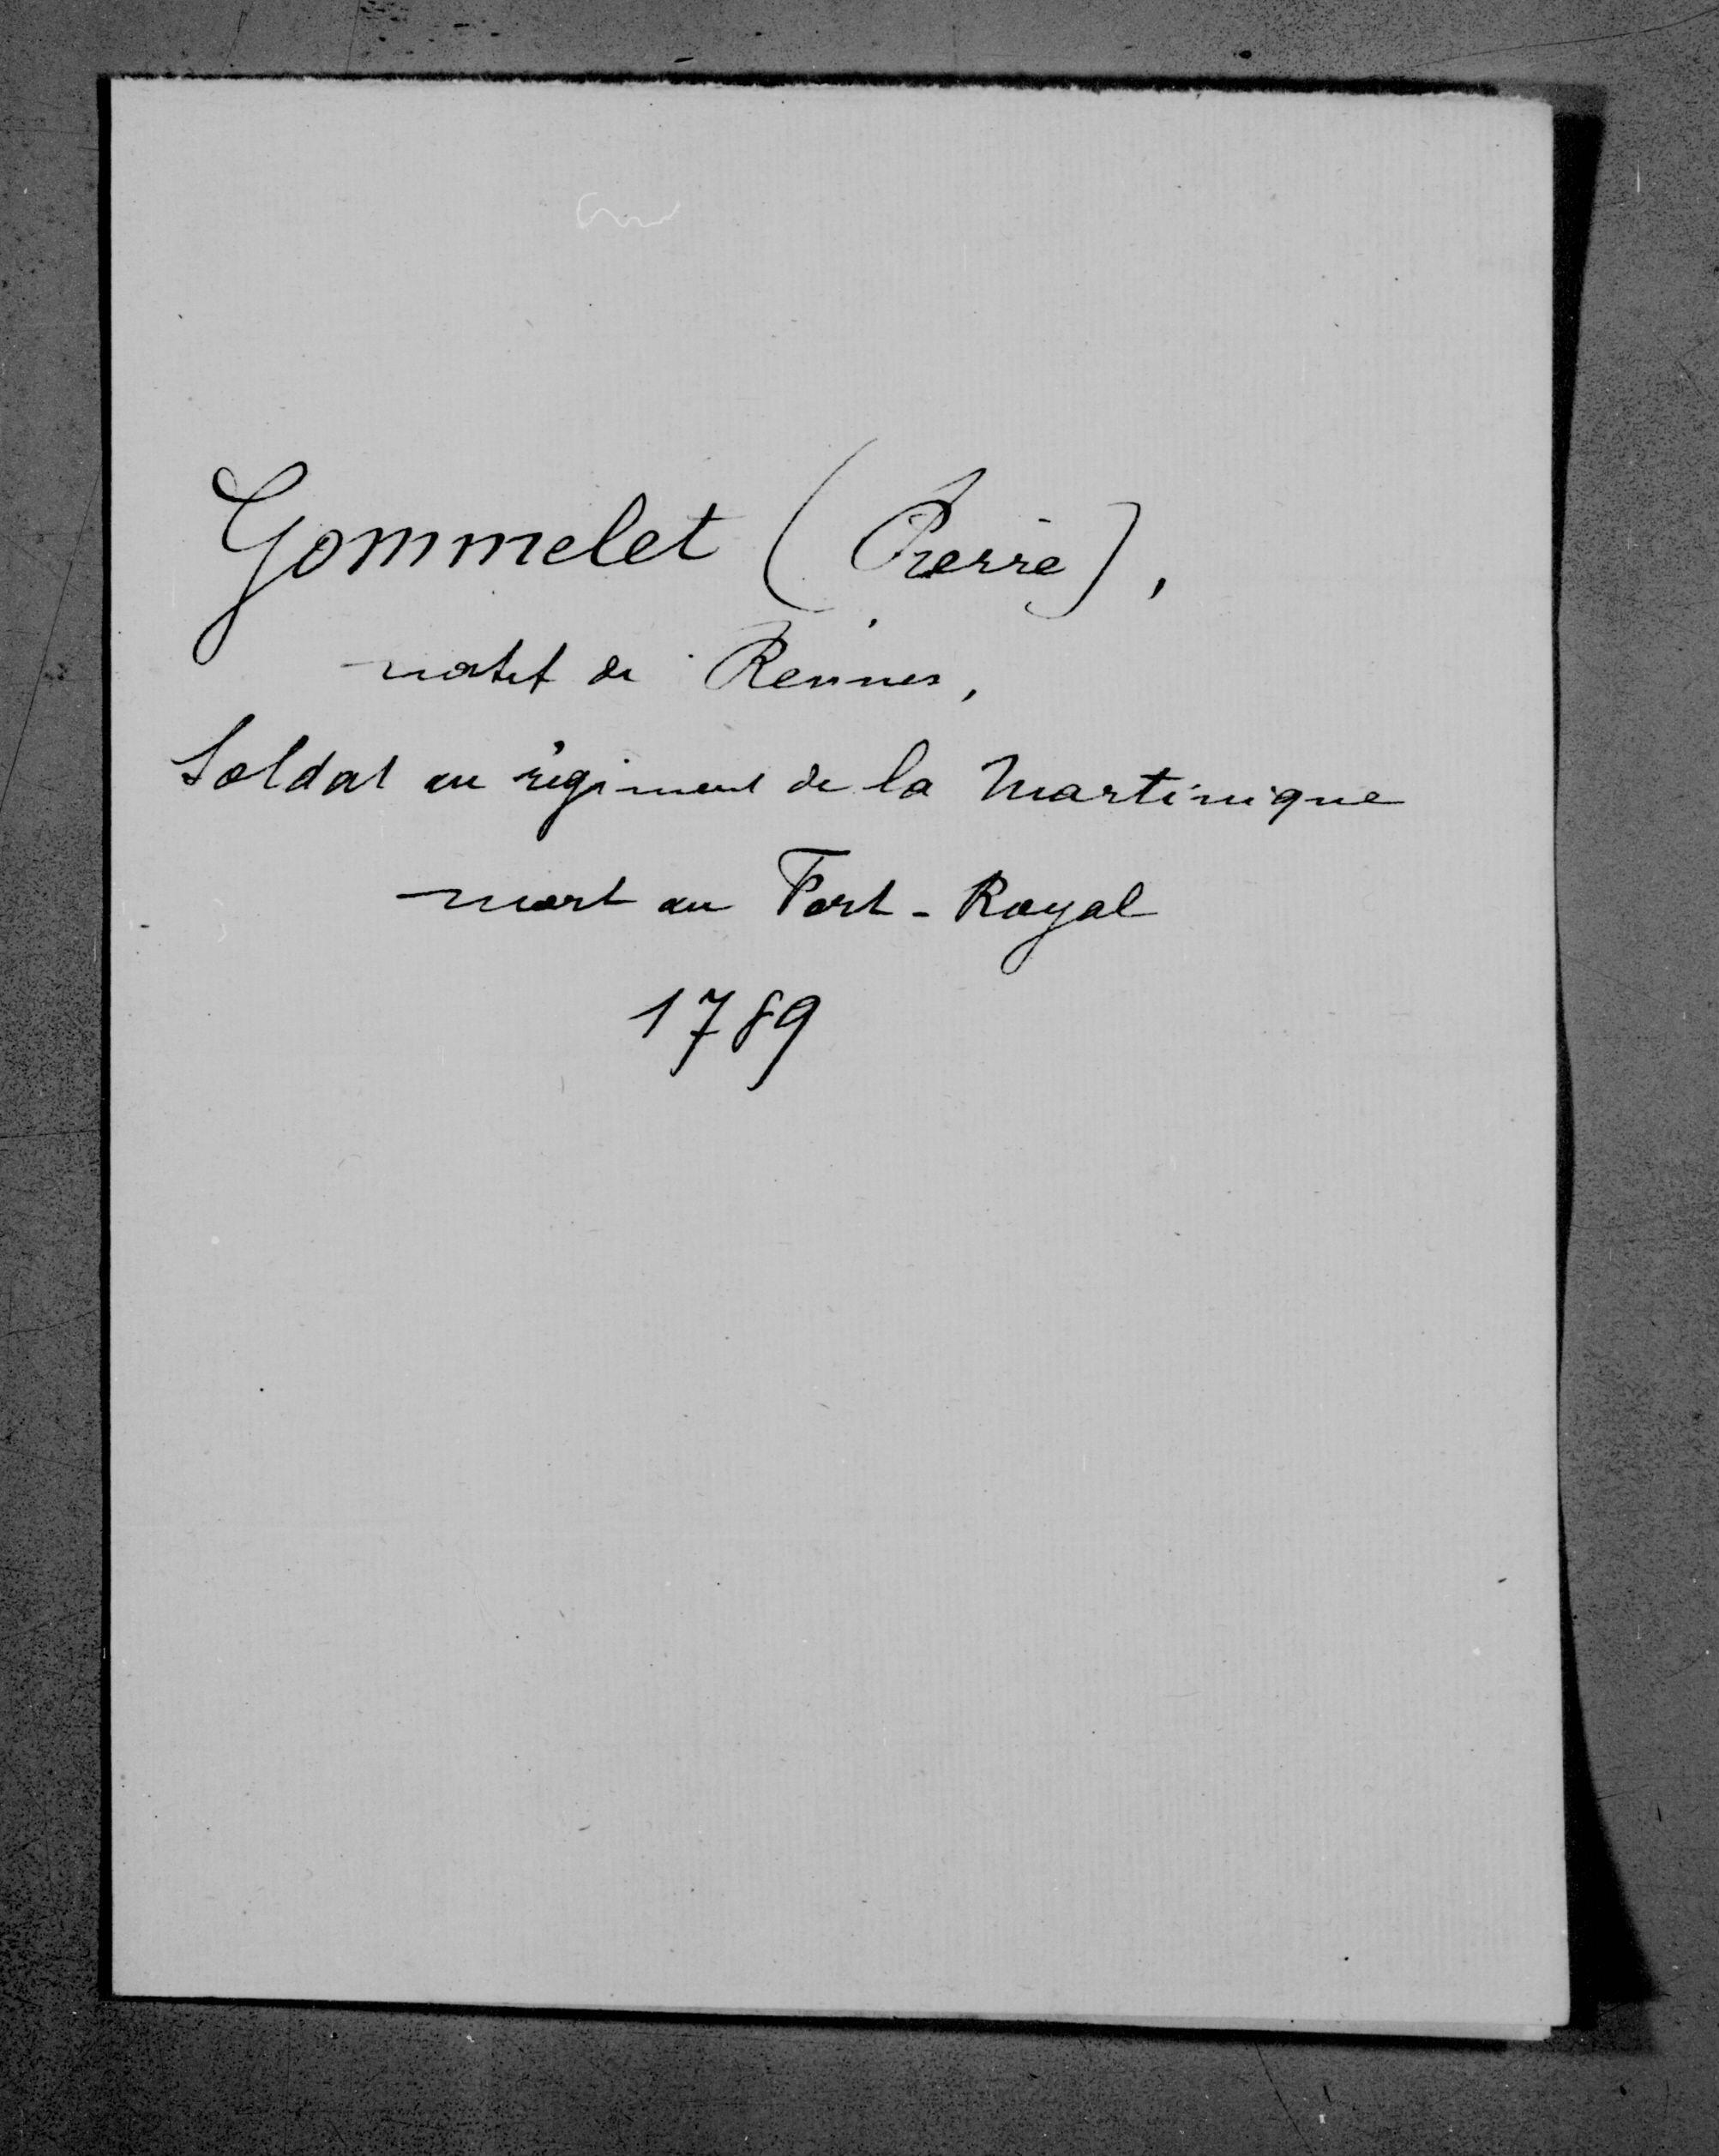 Gommelet (Pierre),
natif de Rennes,
Soldat au régiment de la Martinique
mort au Fort-Royal
1789